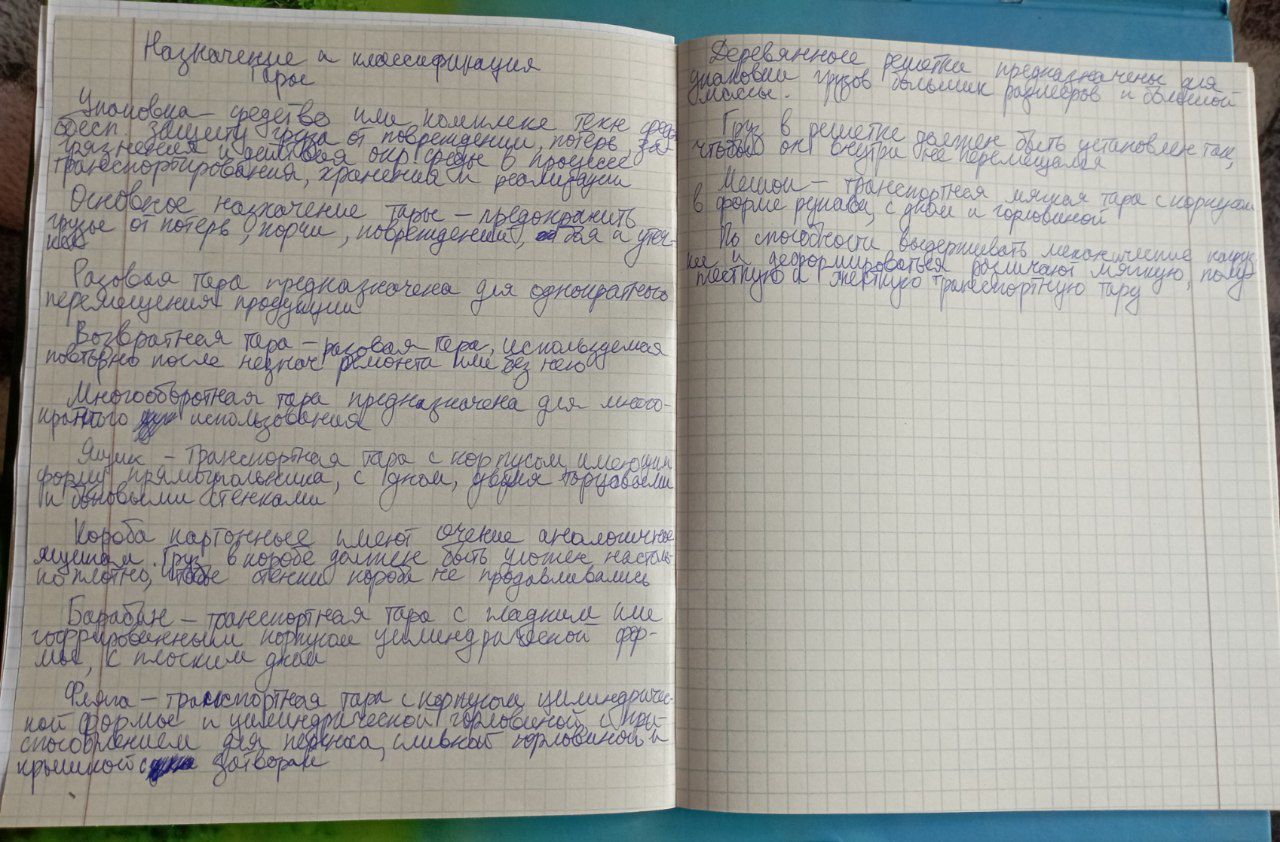 Назначение и классификация
тары
Упаковка – средство или комплекс техн средс
обесп. защиту груза от повреждении, потерь, за-
грязнения и действия окр среды в процессе
транспортирования, хранения и реализации
Основное назначение тары – предохранить
грузы от потерь, порчи, повреждений, боя и утеч-
ки
Разовая тара предназначена для однократного
перемещения продукции
Возвратная тара – разовая тара, используемая
повторно после незнач ремонта или без него
Многооборотная тара предназначена для много-
кратного использования
Ящик – транспортная тара с корпусом имеющим
форму прямоугольника, с дном, двумя торцовыми
и боковыми стенками
Короба картонные имеют сечение аналогичное
ящикам. Груз в коробе должен быть уложен настоль-
ко плотно, чтобы стенки короба не продавливались
Барабан – транспортная тара с гладким или
гофрированным корпусом цилиндрической фор-
мы, с плоским дном
Фляга – транспортная тара с корпусом цилиндричес-
кой формы и цилиндрической горловиной с при-
способлением для переноса, сливной горловиной и
крышкой с затвором
Деревянные решетки предназначены для
упаковки грузов больших размеров и большой
массы.
Груз в решетке должен быть установлен так,
чтобы он внутри не перемещался
Мешки – транспортная мягкая тара с корпусом
в форме рукава, с дном и горловиной
По способности выдерживать механические нагруз
ки и деформироваться различают мягкую, полу-
жесткую и жёсткую транспортную тару